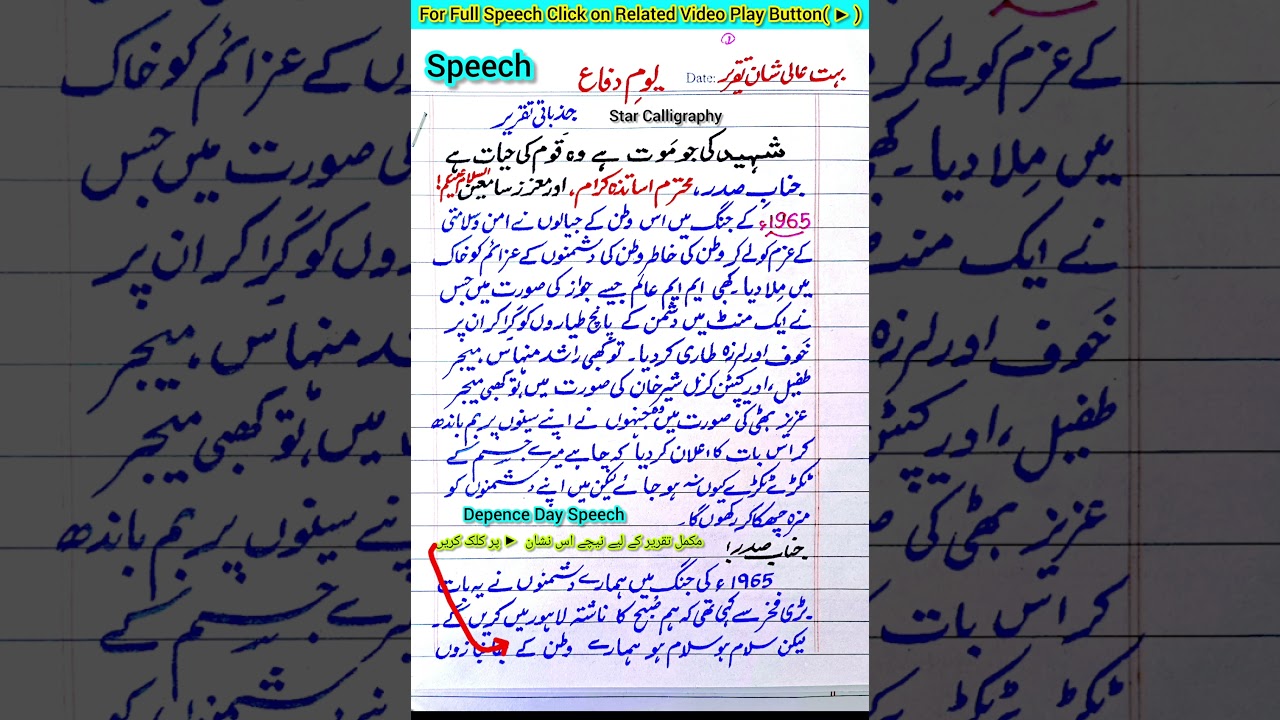 For Full Speech Click on Related Video Play Button( ► )
Speech
بہت عالی شان تقریر
Date:
یومِ دفاع
جذباتی تقریر
Star Calligraphy
شہید کی جو موت ہے وہ قوم کی حیات ہے
جنابِ صدر، محترم اساتذہ کرام، اور معزز سامعین السلام علیکم!
1965ء کے جنگ میں اس وطن کے جیالوں نے امن و سلامتی
کے عزم کو لے کر وطن کی خاطر وطن کی دشمنوں کے عزائم کو خاک
میں مِلا دیا۔ کبھی ایم ایم عالم جیسے جواز کی صورت میں جس
نے ایک منٹ میں دشمن کے پانچ طیاروں کو گرا کر ان پر
خَوف اور لرزہ طاری کر دیا۔ تو کبھی راشد منہاس، میجر
طفیل، اور کیپٹن کرنل شیر خان کی صورت میں، تو کبھی میجر
عزیز بھٹی کی صورت میں جنہوں نے اپنے سینوں پر بم باندھ
کر اس بات کا اعلان کر دیا کہ چاہے میرے جسم کے
ٹکڑے ٹکڑے کیوں نہ ہو جائے لیکن میں اپنے دشمنوں کو
مزہ چھکا کر رکھوں گا۔
Depence Day Speech
مکمل تقریر کے لیے نیچے اس نشان ► پر کلک کریں
جناب صدر!
1965ء کی جنگ میں ہمارے دشمنوں نے یہ بات
بڑی فخر سے کہی تھی کہ ہم صُبح کا ناشتہ لاہور میں کریں گے۔
لیکن سلام ہو سلام ہو ہمارے وطن کے جانبازوں